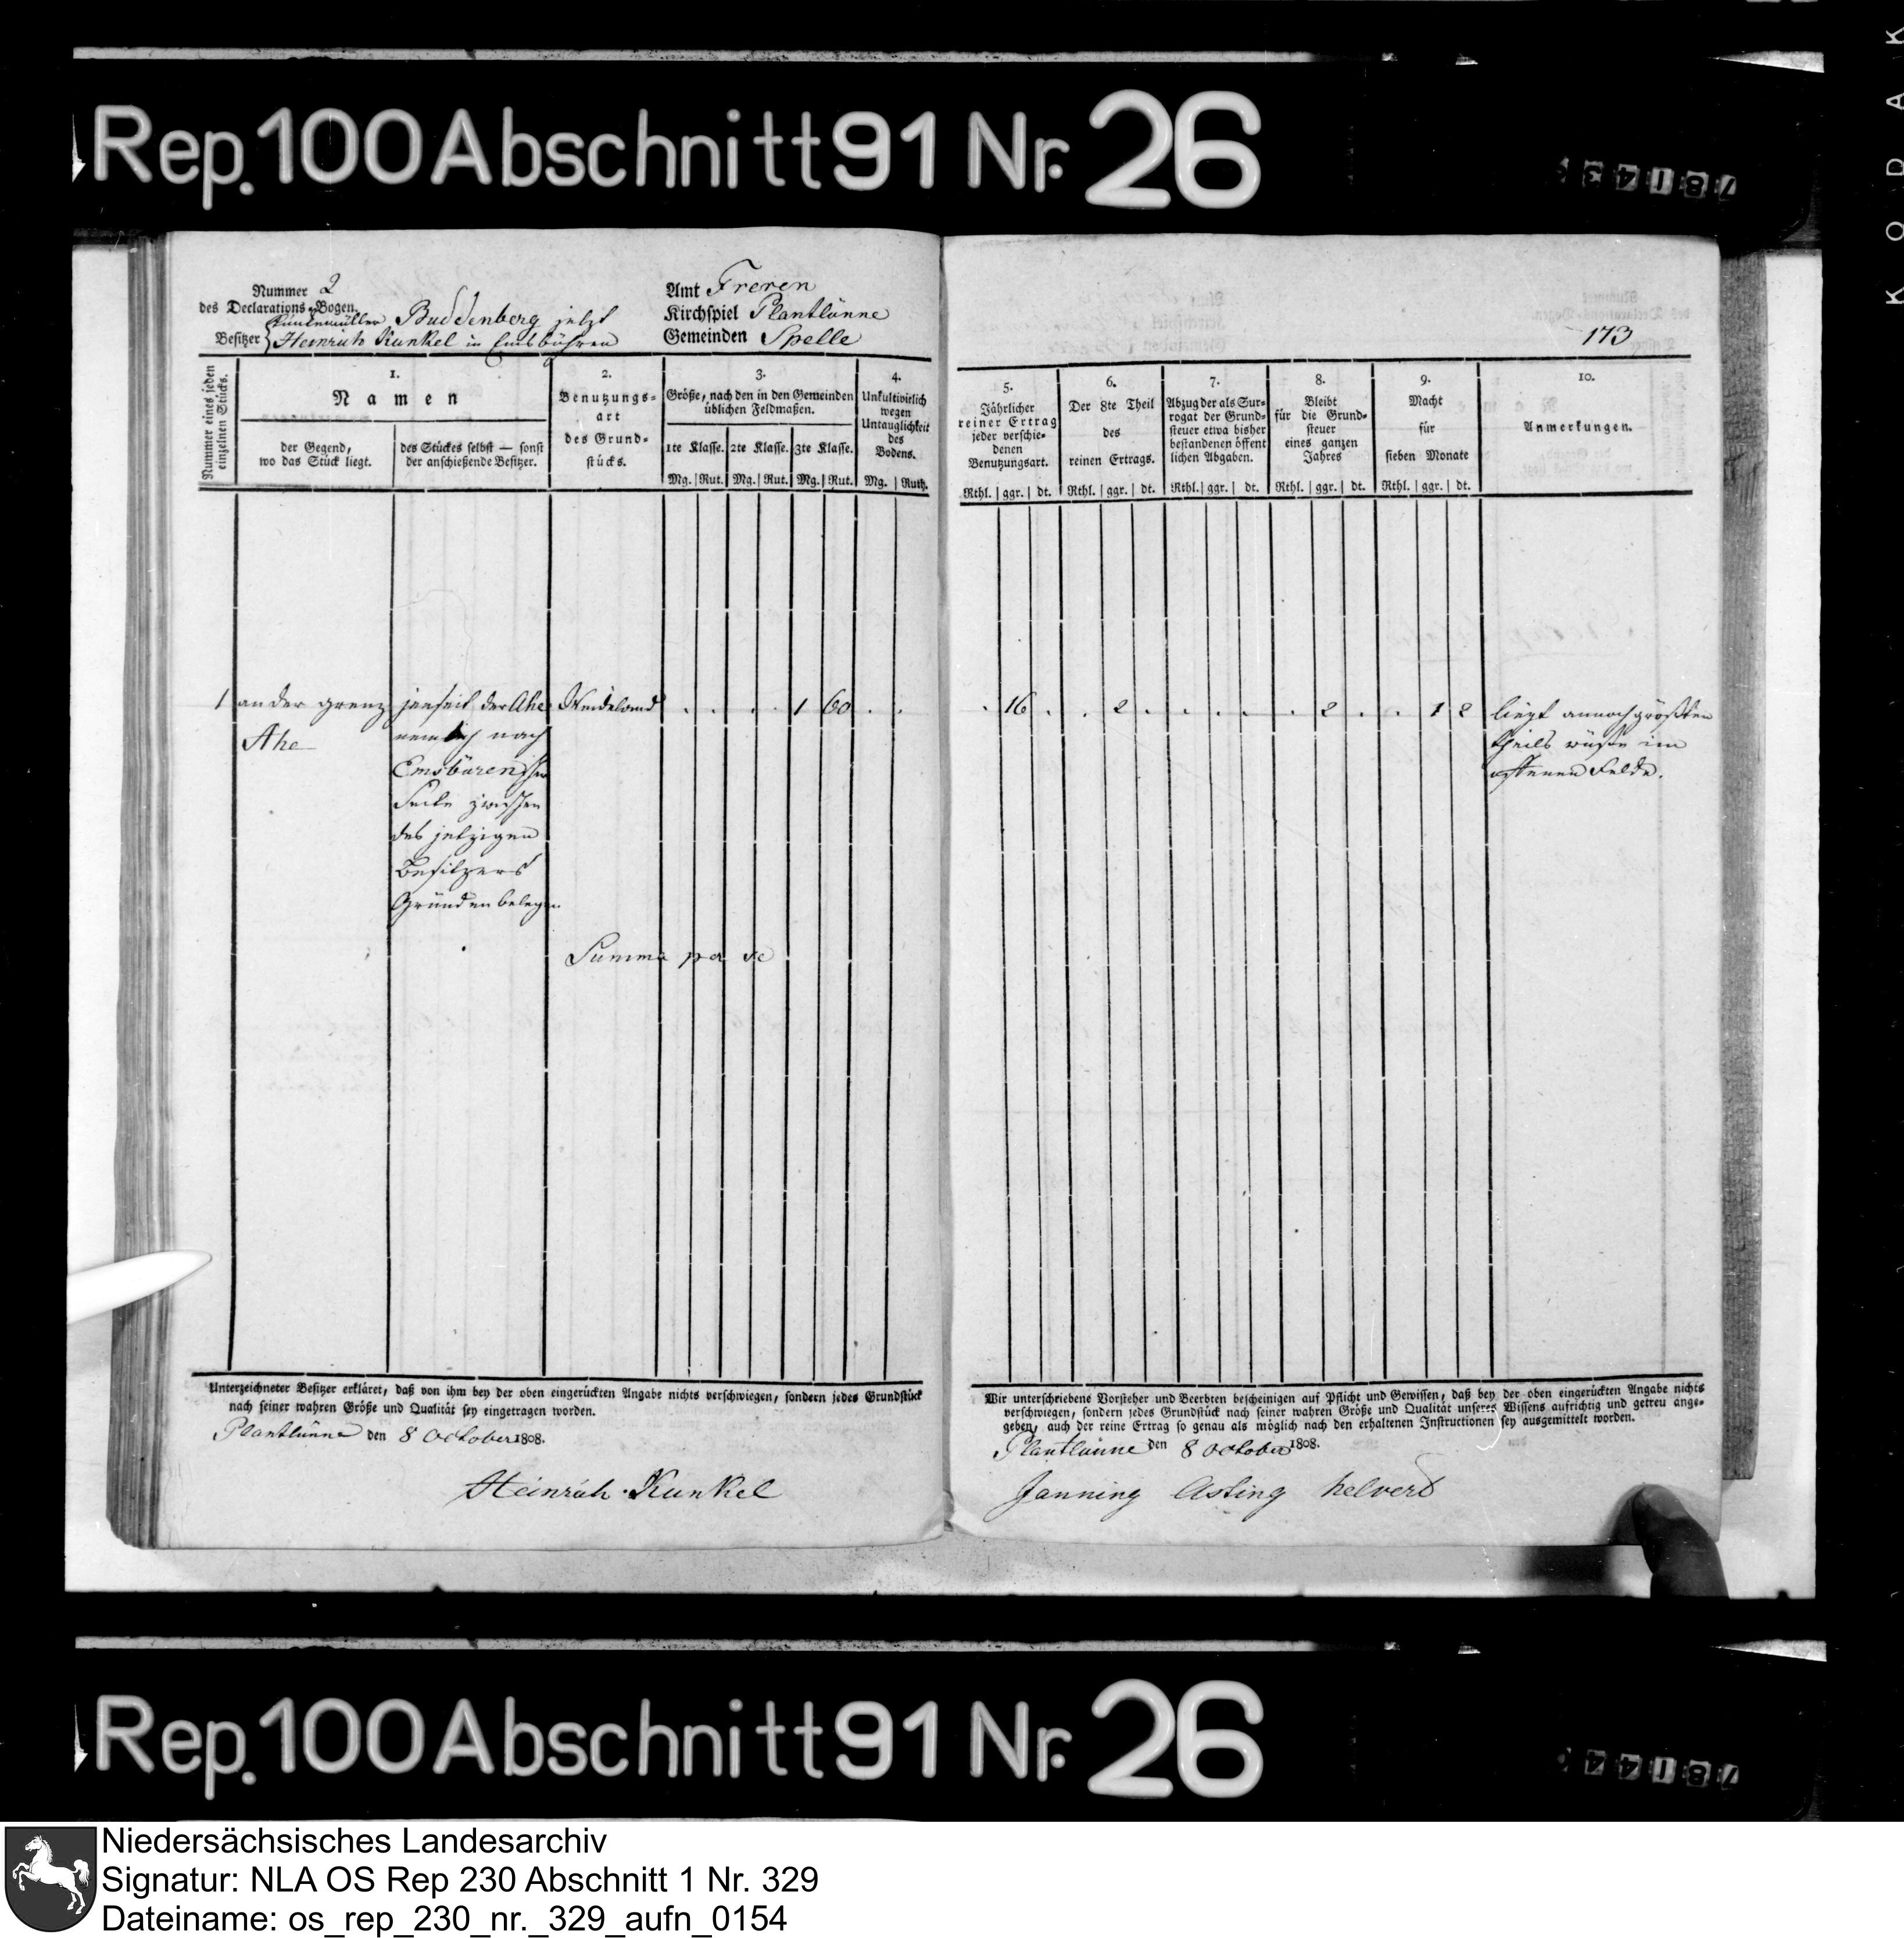 KODAK
Rep. 100 Abschnitt 91 Nr. 26
Nummer 2
des Declarations-Bogen.
Buddenberg jetzt
Besitzer Heinrich Kunkel in Emsbühren
Amt Freren
Kirchspiel Plantlünne
Gemeinden Spelle
173
Nummer eines jeden einzelnen Stücks.
1.
Namen
der Gegend,
wo das Stück liegt.
des Stückes selbst — sonst
der anschießende Besitzer.
2.
Benutzungs-
art
des Grund-
stücks.
3.
Größe, nach den in den Gemeinden
üblichen Feldmaßen.
1te Klasse. 2te Klasse. 3te Klasse.
Mg. Rut. Mg. Rut. Mg. Rut.
4.
Unkultivirlich
wegen
Untauglichkeit
des
Bodens.
Mg. Ruth.
5.
Jährlicher
reiner Ertrag
jeder verschie-
denen
Benutzungsart.
Rthl. ggr. dt.
6.
Der 8te Theil
des
reinen Ertrags.
Rthl. ggr. dt.
7.
Abzug der als Sur-
rogat der Grund-
steuer etwa bisher
bestandenen öffent
lichen Abgaben.
Rthl. ggr. dt.
8.
Bleibt
für die Grund-
steuer
eines ganzen
Jahres
Rthl. ggr. dt.
9.
Macht
für
sieben Monate
Rthl. ggr. dt.
10.
Anmerkungen.
1 an der grenz jenseit der Ahe Weideland . . . . 1 60 . . . 16 . . 2 . . . . . 2 . . 1 2 liegt annoch größten
Ahe nemlich nach theils wüste im
Emsbürenscher offenen Felde.
Seite zwischen
des jetzigen
Besitzers
Gründen belegen
Summa per se
Unterzeichneter Besitzer erkläret, daß von ihm bey der oben eingerückten Angabe nichts verschwiegen, sondern jedes Grundstück
nach seiner wahren Größe und Qualität sey eingetragen worden.
Plantlünne den 8 October 1808.
Heinrich Kunkel
Wir unterschriebene Vorsteher und Beerbten bescheinigen auf Pflicht und Gewissen, daß bey der oben eingerückten Angabe nichts
verschwiegen, sondern jedes Grundstück nach seiner wahren Größe und Qualität unseres Wissens aufrichtig und getreu ange-
geben, auch der reine Ertrag so genau als möglich nach den erhaltenen Instructionen sey ausgemittelt worden.
Plantlünne den 8 October 1808.
Janning Asting helvert
Rep. 100 Abschnitt 91 Nr. 26
Niedersächsisches Landesarchiv
Signatur: NLA OS Rep 230 Abschnitt 1 Nr. 329
Dateiname: os_rep_230_nr._329_aufn_0154